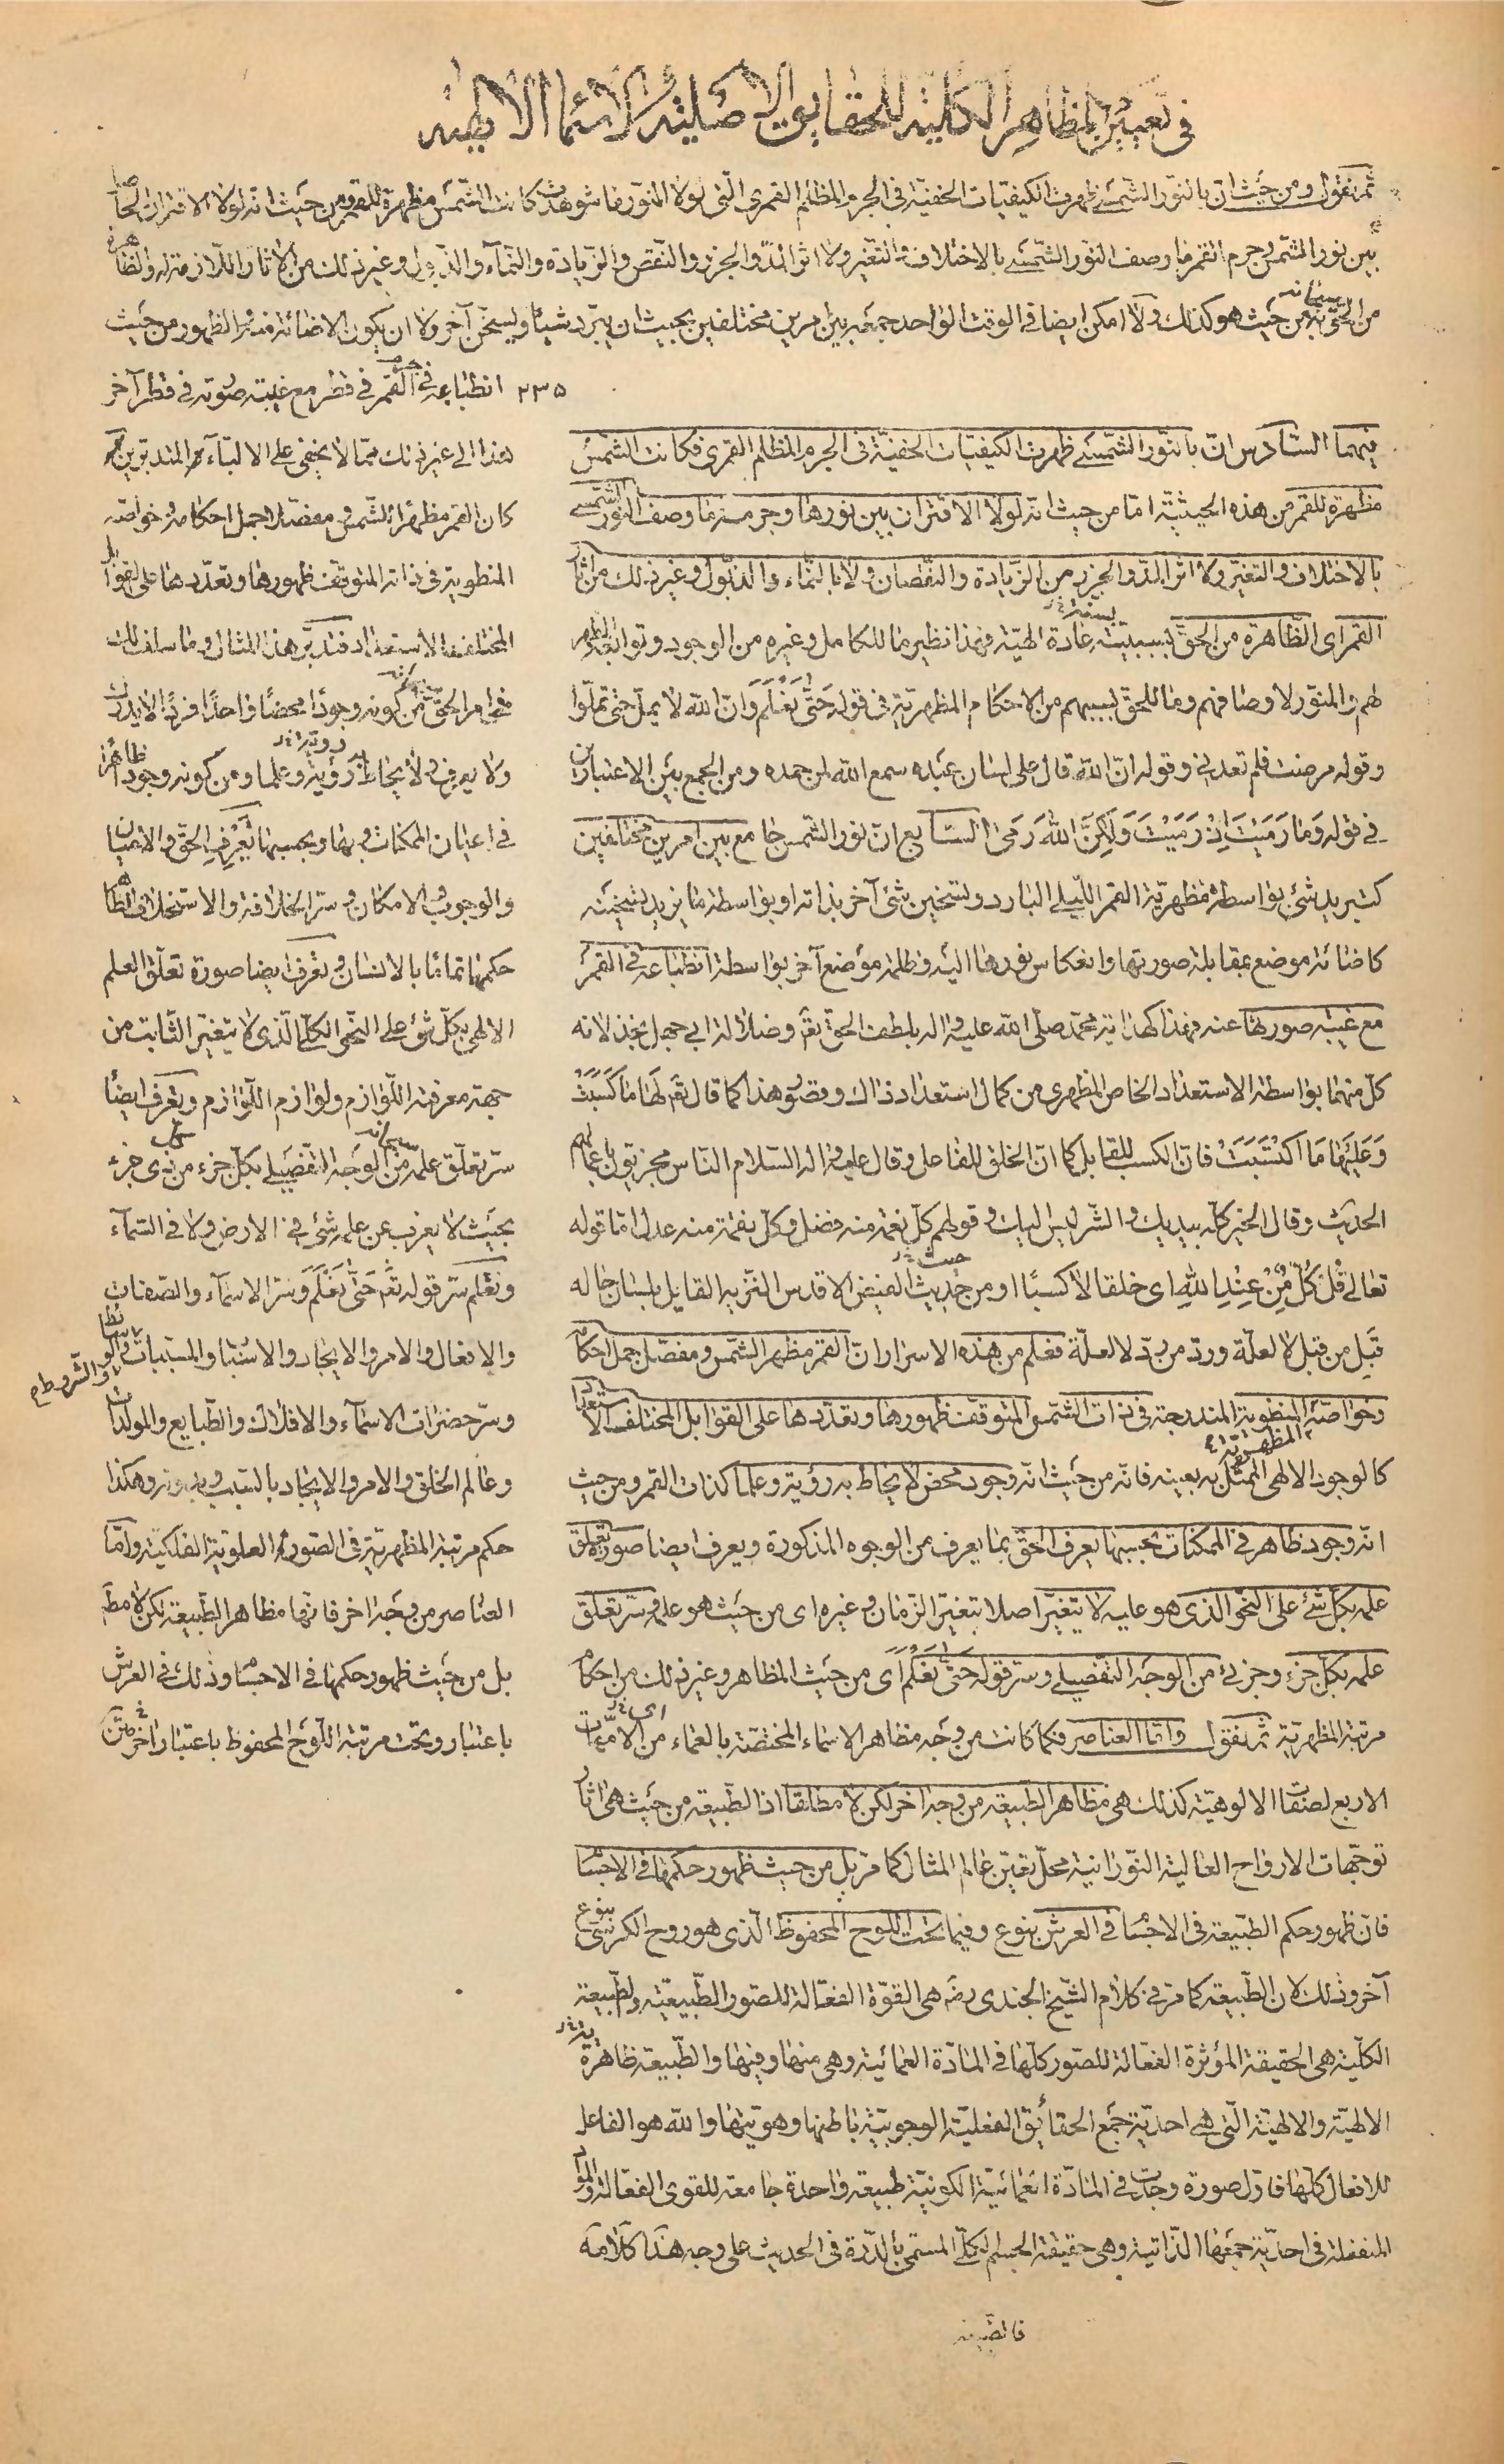 في تعيين المظاهر الكلية للحقايق الاصلية للاسماء الالهية
ثم نقول ومن حيث ان بالنور الشمسي ظهرت الكيفيات الخفية في الجرم المظلم القمري التي لولا النور فما شوهدت كانت الشمس مظهرة للقمر ومن حيث انه لولا الاقتران الحاصل
بين نور الشمس وجرم القمر فما وصف النور الشمسي بالاختلاف والتغير ولا اثر المد والجزر والنقص والزيادة والنماء والذبول وغير ذلك من الآثار اللازمة له والظاهرة
من الحق سبحانه به من حيث هو كذلك ولا امكن ايضا في الوقت الواحد جمعه بين امرين مختلفين بحيث ان يبرد شيئا ويسخن آخر ولا ان يكون الاضائة منه والظهور من حيث
٢٣٥ انطباعه في جرم القمر في قطر مع غيبة صورته في قطر آخر
هذا الى غير ذلك مما لا يخفى على الالباء المتدبرين
كان القمر مظهرا للشمس ومفصلا لجمل احكامه وخواصه
المنطوية في ذاته المتوقف ظهورها وتعددها على القوابل
المختلفة الاستعداد فتدبر هذا المثال وما سلف لك
في امر الحق سبحانه من كونه وجودا محضا واحدا فردا لا يدرك
ولا يعرف ولا يحاط به رؤية وعلما ومن كونه وجودا ظاهرا
في اعيان الممكنات وبها وبحسبها تعرف الحق والاعيان
والوجوب والامكان وسر الخلافة والاستخلاف الظاهر
حكمها تماما بالانسان وتعرف ايضا صورة تعلق العلم
الالهي بكل شئ على النحو الكلي الذي لا يتغير الثابت من
جهة معرفة اللوازم ولوازم اللوازم وتعرف ايضا
سر تعلق علمه سبحانه من الوجه التفصيلي بكل جزء من كل ذي جزء
بحيث لا يعزب عن علمه شئ في الارض ولا في السماء
وتعلم سر قوله تعالى حَتَّى نَعْلَمَ وسر الاسماء والصفات
والافعال والامر والايجاد والاسباب والمسببات والوسائط والشروط م
وسر حضرات الاسماء والافلاك والطبايع والمولدات
وعالم الخلق والامر والايجاد بالسبب وبدونه وهكذا
حكم مرتبة المظهرية في الصورة العلوية الفلكية واما
العناصر من وجه آخر فانها مظاهر الطبيعة لكن لا مط
بل من حيث ظهور حكمها في الاجسام وذلك في العرش
باعتبار وتحت مرتبة اللوح المحفوظ باعتبار آخر
منهما السادس ان بالنور الشمسي ظهرت الكيفيات الخفية في الجرم المظلم القمري فكانت الشمس
مظهرة للقمر من هذه الحيثية اما من حيث انه لولا الاقتران بين نورها وجرمه فما وصف النور الشمسي
بالاختلاف والتغير ولا اثر المد والجزر من الزيادة والنقصان ولا بالنماء والذبول وغير ذلك من آثار
القمر اى الظاهرة من الحق بسببيته عادة الهية فهذا نظير ما للكامل وغيره من الوجود وتوابعه
لهم والمنور لاوصافهم وما للحق بسببهم من الاحكام المظهرية في قوله حَتَّى نَعْلَمَ وَان الله لا يمل حتى تملوا
وقوله مرضت فلم تعدني وقوله ان الله قال على لسان عبده سمع الله لمن حمده ومن الجمع بين الاعتبارين
في قوله وَمَا رَمَيْتَ اِذْ رَمَيْتَ وَلَكِنَّ اللهَ رَمَى السابع ان نور الشمس جامع بين امرين مختلفين
كتبريد شئ بواسطة مظهرية القمر الليلي البارد وتسخين شئ آخر بذاته او بواسطة ما يزيد تسخينه
كاضائة موضع بمقابلة صورتها وانعكاس نورها اليه وظلمة موضع آخر بواسطة انطباعه في القمر
مع غيبة صورتها عنه فهذا كهداية محمد صلى الله عليه واله بلطف الحق تعالى وضلالة ابي جهل بخذلانه
كل منهما بواسطة الاستعداد الخاص المظهري من كمال استعداد ذاك وقصور هذا كما قال تعالى لَهَا مَا كَسَبَتْ
وَعَلَيْهَا مَا اكْتَسَبَتْ فان الكسب للقابل كما ان الخلق للفاعل وقال عليه واله السلام الناس مجزيون باعمالهم
الحديث وقال الخير كله بيديك والشر ليس اليك وقولهم كل نعمة منه فضل وكل نقمة منه عدل اما قوله
تعالى قُلْ كُلٌّ مِنْ عِنْدِ اللهِ اى خلقا لا كسبا او من حيث الفيض الاقدس النزيه القايل بلسان حاله
قَبِل من قبل لا لعلة ورد من رد لا لعلة فعلم من هذه الاسرار ان القمر مظهر الشمس ومفصل جمل احكام
وخواصه المنطوية المندرجة في ذات الشمس المتوقف ظهورها وتعددها على القوابل المختلفة الاستعداد
كالوجود الالهي الممثل به بعينه فانه من حيث انه وجود محض لا يحاط به رؤية وعلما كذات القمر ومن حيث
انه وجود ظاهر في الممكنات بحسبها يعرف الحق بما يعرف من الوجوه المذكورة ويعرف ايضا صورة تعلق
علمه بكل شئ على النحو الذي هو عليه لا يتغير اصلا بتغير الزمان وغيره اى من حيث هو علمه وسر تعلق
علمه بكل جزء وجزئ من الوجه التفصيلي وسر قوله حَتَّى نَعْلَمَ اى من حيث المظاهر وغير ذلك من احكام
مرتبة المظهرية ثم نقول واما العناصر فكما كانت من وجه مظاهر الاسماء المختصة بالعماء من الامهات
الاربع لصفات الالوهية كذلك هي مظاهر الطبيعة من وجه آخر لكن لا مطلقا اذ الطبيعة من حيث هي آثار
توجهات الارواح العالية النورانية محل تعين عالم المثال كما مر بل من حيث ظهور حكمها في الاجسام
فان ظهور حكم الطبيعة في الاجسام في العرش بنوع وفيما تحت اللوح المحفوظ الذي هو روح الكرسي بنوع
آخر وذلك لان الطبيعة كما مر في كلام الشيخ الجندي رضه هي القوة الفعالة للصور الطبيعية والطبيعة
الكلية هي الحقيقة المؤثرة الفعالة للصور كلها في المادة العمائية وهي منها وفيها والطبيعة ظاهرة
الالهية والالهية التي هي احدية جمع الحقائق الفعلية الوجوبية باطنها وهويتها والله هو الفاعل
للافعال كلها فاول صورة وجدت في المادة العمائية الكونية طبيعة واحدة جامعة للقوى الفعالة والمواد
المنفعلة في احدية جمعها الذاتية وهي حقيقة الجسم الكلي المسمى بالدرة في الحديث على وجه هذا كلامه
فالطبيعة